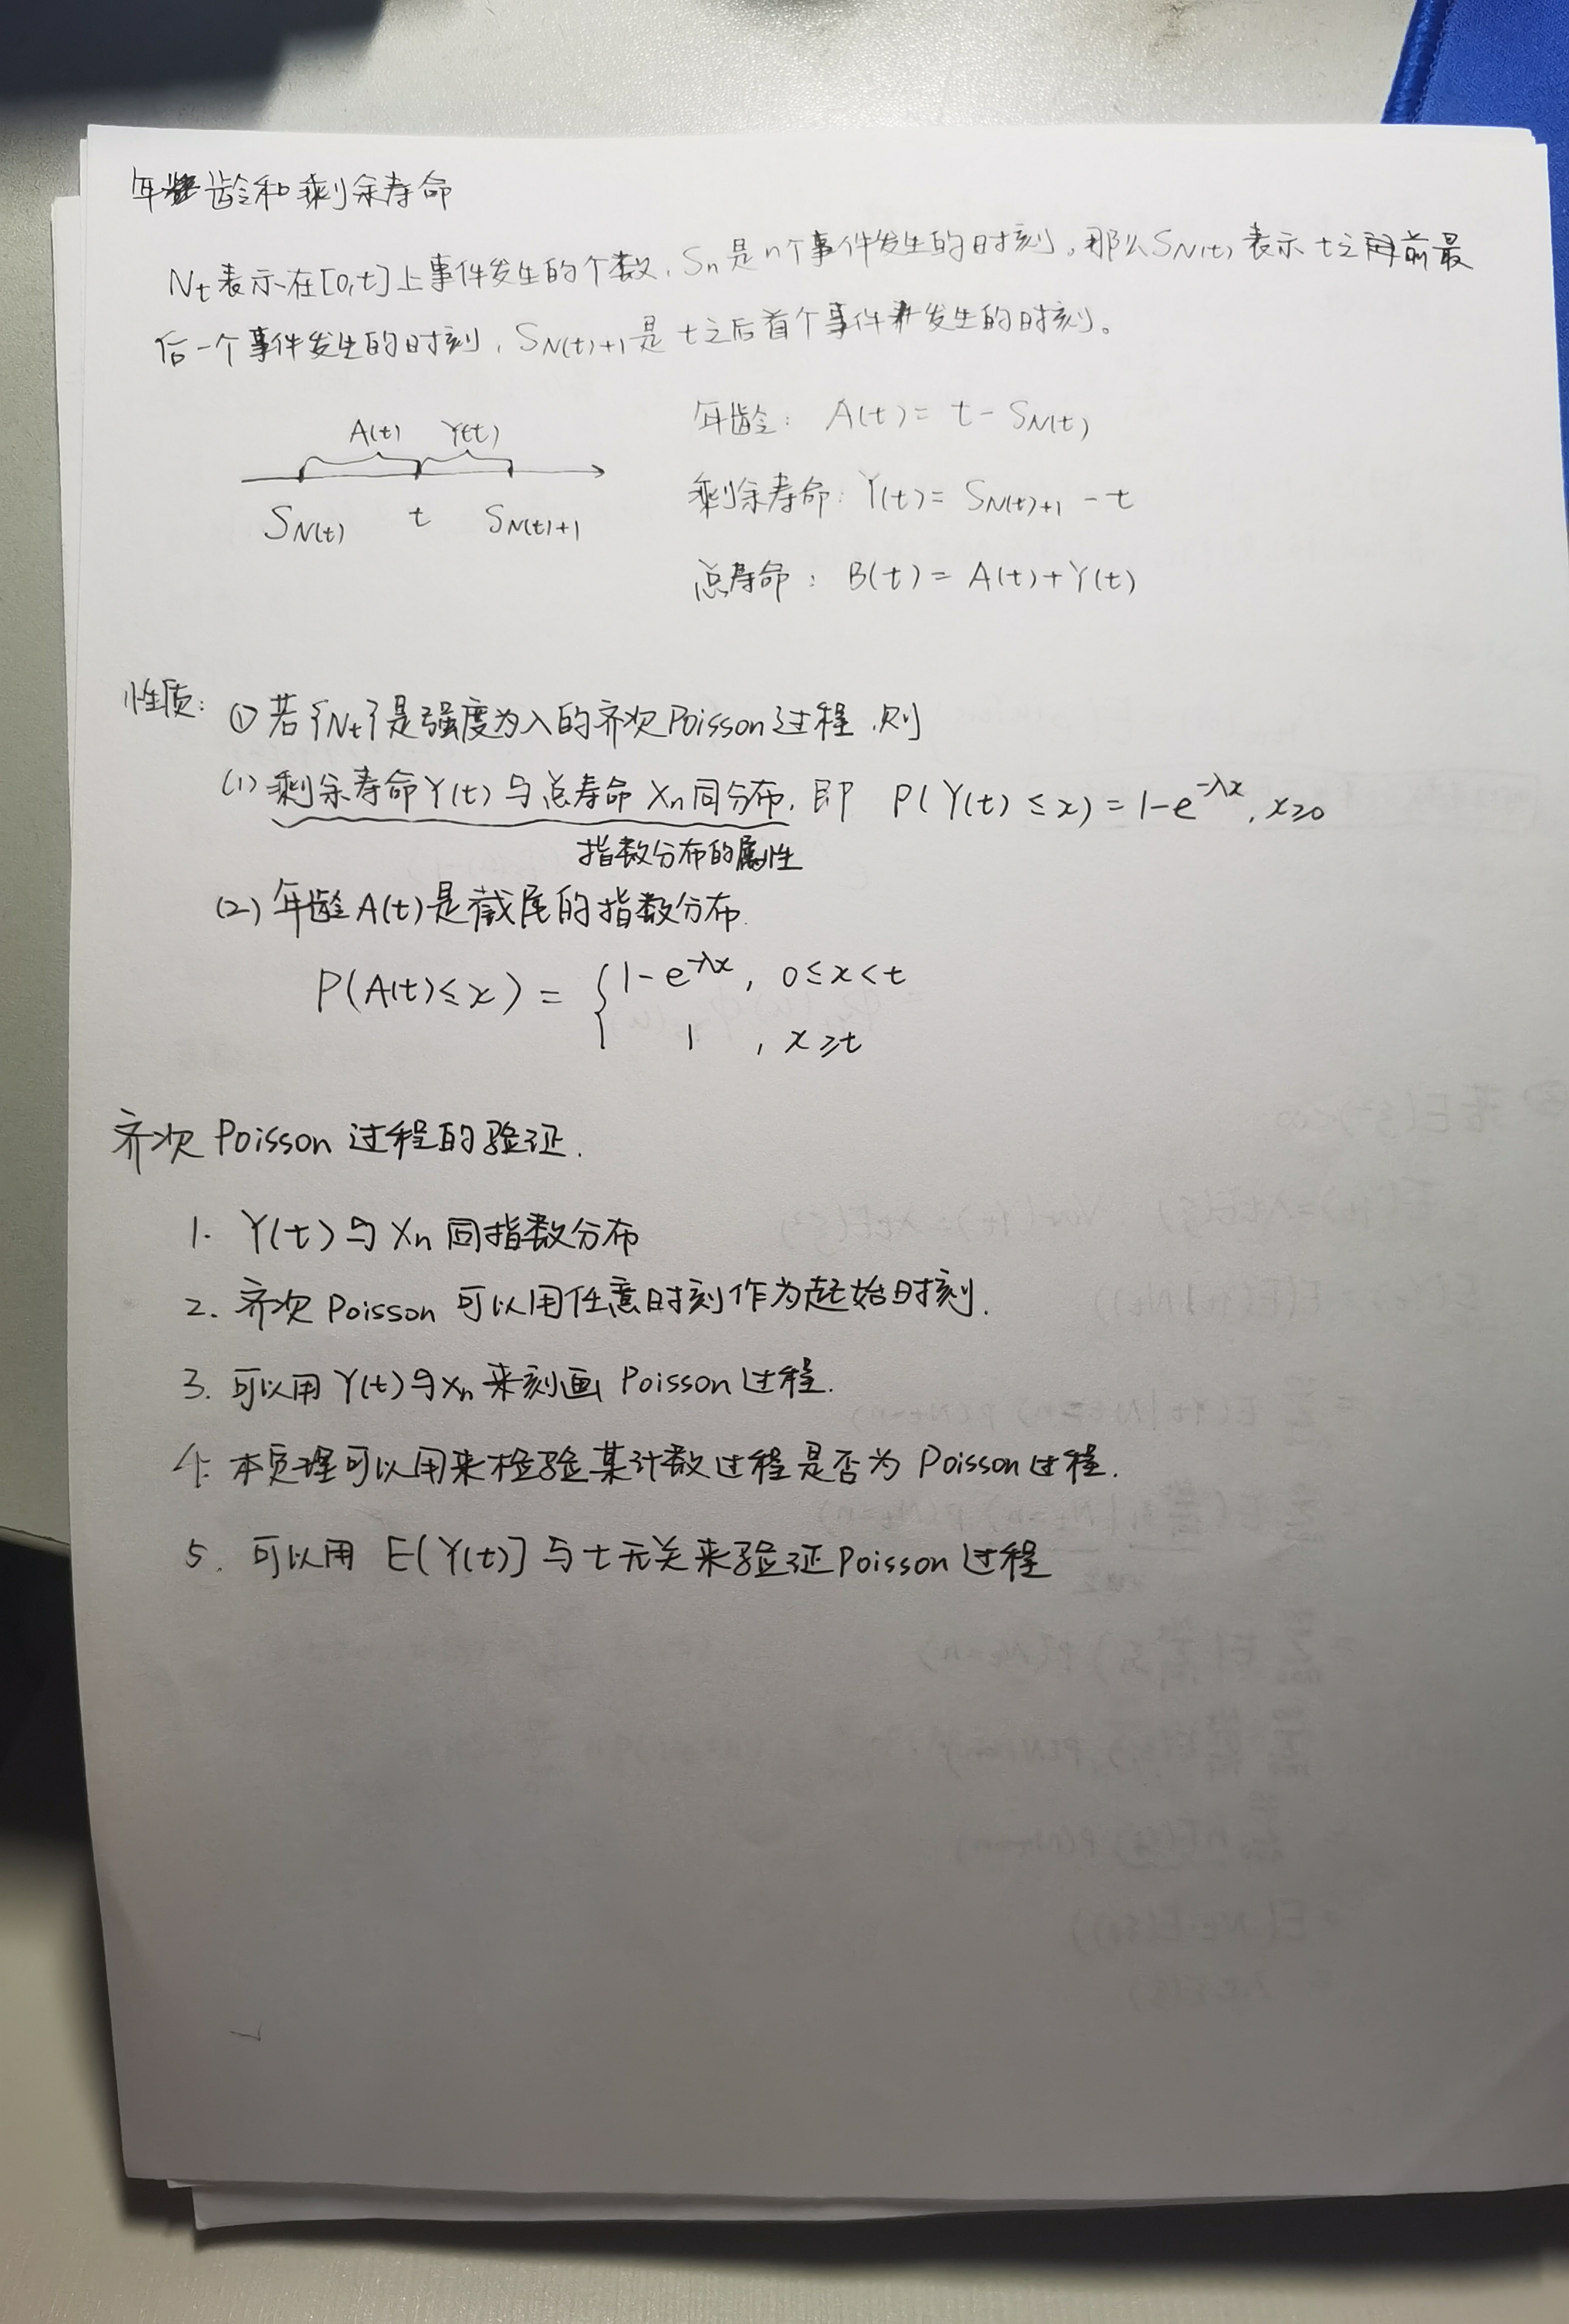 年龄和剩余寿命
Nt表示在[0,t]上事件发生的个数，Sn是n个事件发生的时刻。那么SN(t)表示t之前最
后一个事件发生的时刻，SN(t)+1是t之后首个事件发生的时刻。
A(t) Y(t)
SN(t) t SN(t)+1
年龄：A(t)= t - SN(t)
剩余寿命：Y(t)= SN(t)+1 - t
总寿命：B(t)= A(t)+Y(t)
性质：① 若{Nt}是强度为λ的齐次Poisson过程，则
(1) 剩余寿命Y(t)与总寿命Xn同分布，即 P(Y(t)≤x)=1-e^{-λx}, x≥0
指数分布的属性
(2) 年龄A(t)是截尾的指数分布.
P(A(t)≤x) = { 1-e^{-λx}, 0≤x<t
1 , x≥t
齐次Poisson过程的验证.
1. Y(t)与Xn同指数分布
2. 齐次Poisson可以用任意时刻作为起始时刻.
3. 可以用Y(t)与Xn来刻画Poisson过程.
4. 本定理可以用来检验某计数过程是否为Poisson过程.
5. 可以用E[Y(t)]与t无关来验证Poisson过程